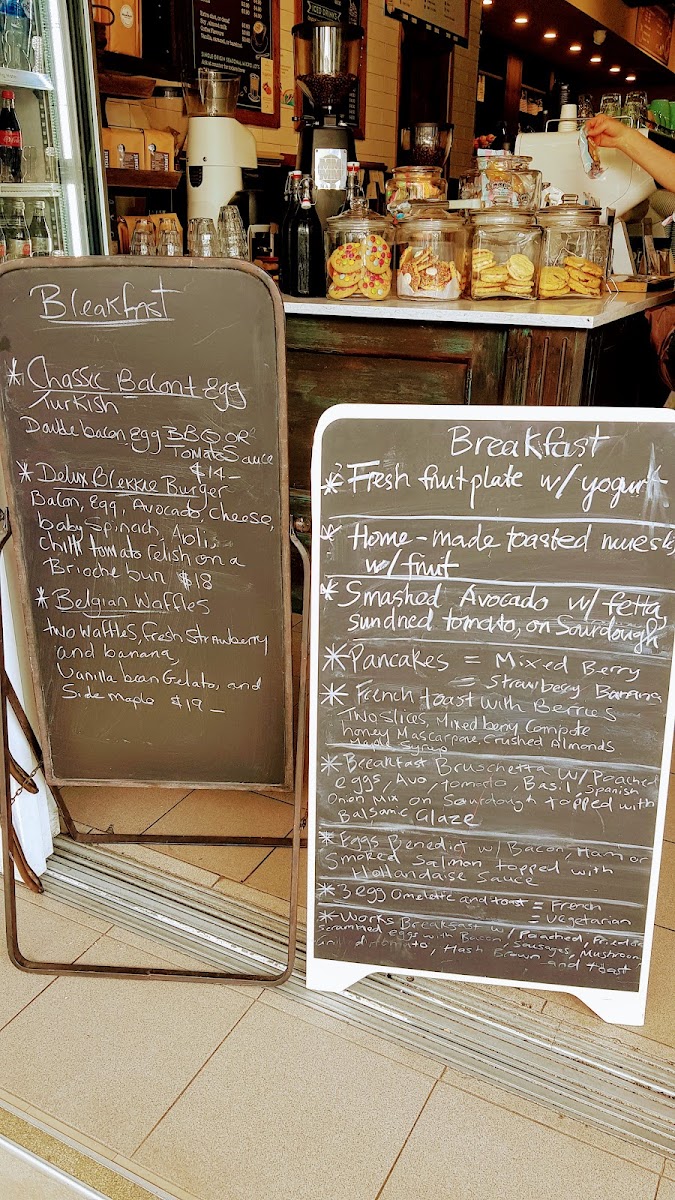 Bleakfast
* Chassic Balont egg
Turkish
Double bacon, egg BBQ OR
Tomato Sauce
$14-
* Delux Blekkie Burger
Bacon, Egg, Avocado, Cheese,
baby Spinach, Aioli,
Chilli tomato relish on a
Brioche bun $18
* Belgian Waffles
two Waffles, Fresh Strawberry
and banana,
Vanilla bean Gelato, and
Side maple $19-
Breakfast
* Fresh fruit plate w/ yogurt
* Home-made toasted muesli
w/ fruit
* Smashed Avocado w/ fetta,
sundried tomato, on Sourdough
* Pancakes = Mixed Berry
= Strawberry Banana
* French toast with Berries
Two slices, Mixed berry Compote
honey Mascarpone, Crushed Almonds
Maple Syrup
* Breakfast Bruschetta w/ Poached
eggs, Avo, Tomato, Basil, Spanish
Onion Mix on Sourdough topped with
Balsamic Glaze
* Eggs Benedict w/ Bacon, Ham or
Smoked Salmon topped with
Hollandaise Sauce
* 3 egg Omelette and toast = French
= Vegetarian
* Works Breakfast w/ Poached, Fried or
Scrambled eggs with Bacon, Sausages, Mushroom
Grilled tomato, Hash Brown and toast